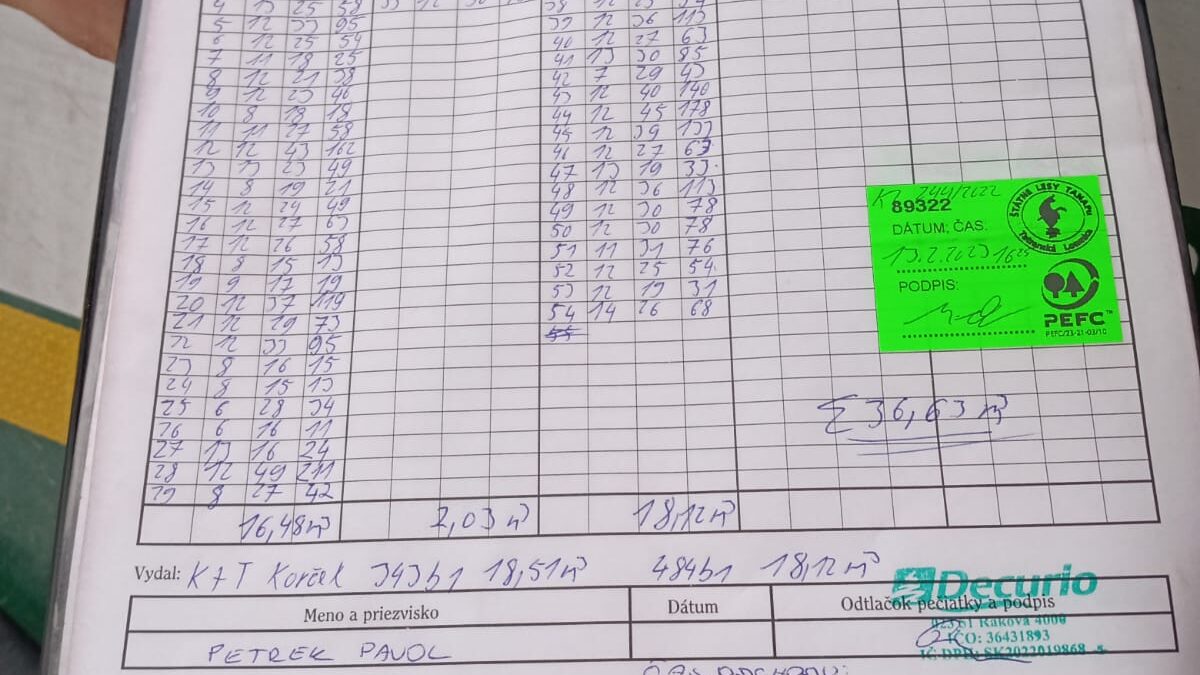 4 13 25 58
5 12 33 95
6 12 25 54
7 11 18 25
8 12 21 38
9 12 23 46
10 8 18 18
11 11 27 58
12 12 43 162
13 13 23 49
14 8 19 21
15 12 24 49
16 12 27 63
17 12 26 58
18 8 15 13
19 9 17 19
20 12 37 119
21 12 29 73
22 12 33 95
23 8 16 15
24 8 15 13
25 6 28 34
26 6 16 11
27 13 16 24
28 12 49 211
29 8 27 42
16,48 m³
2,03 m³
39 12 36 113
40 12 27 63
41 13 30 85
42 7 29 43
43 12 40 140
44 12 45 178
45 12 39 133
46 12 27 63
47 13 19 33
48 12 36 113
49 12 30 78
50 12 30 78
51 11 31 76
52 12 25 54
53 12 19 31
54 14 26 68
55
18,12 m³
K 244/2022
89322
DÁTUM, ČAS:
13.2.2023 16
PODPIS:
ŠTÁTNE LESY TANAPU
Tatranská Lomnica
PEFC™
PEFC/23-21-03/10
Σ 36,63 m³
Vydal: KFT Korček 343b1 18,51 m³ 484b1 18,12 m³
Decurio
Meno a priezvisko Dátum Odtlačok pečiatky a podpis
023 51 Raková 4000
IČO: 36431893
IČ DPH: SK2022019868
PETREK PAVOL
ČAS ODCHODU: